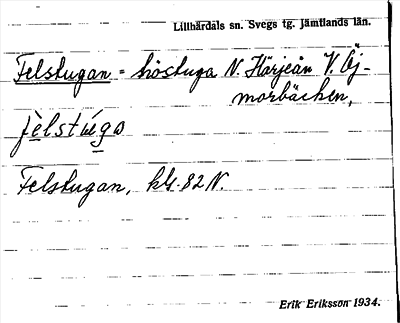 Lillhärdals sn. Svegs tg. Jämtlands län.
Felstugan = höstuga N. Härjeån V. Öj-
morbäcken,
fè̱lstú̱gɷ
Felstugan, kbl. 82 N.
Erik Eriksson 1934.